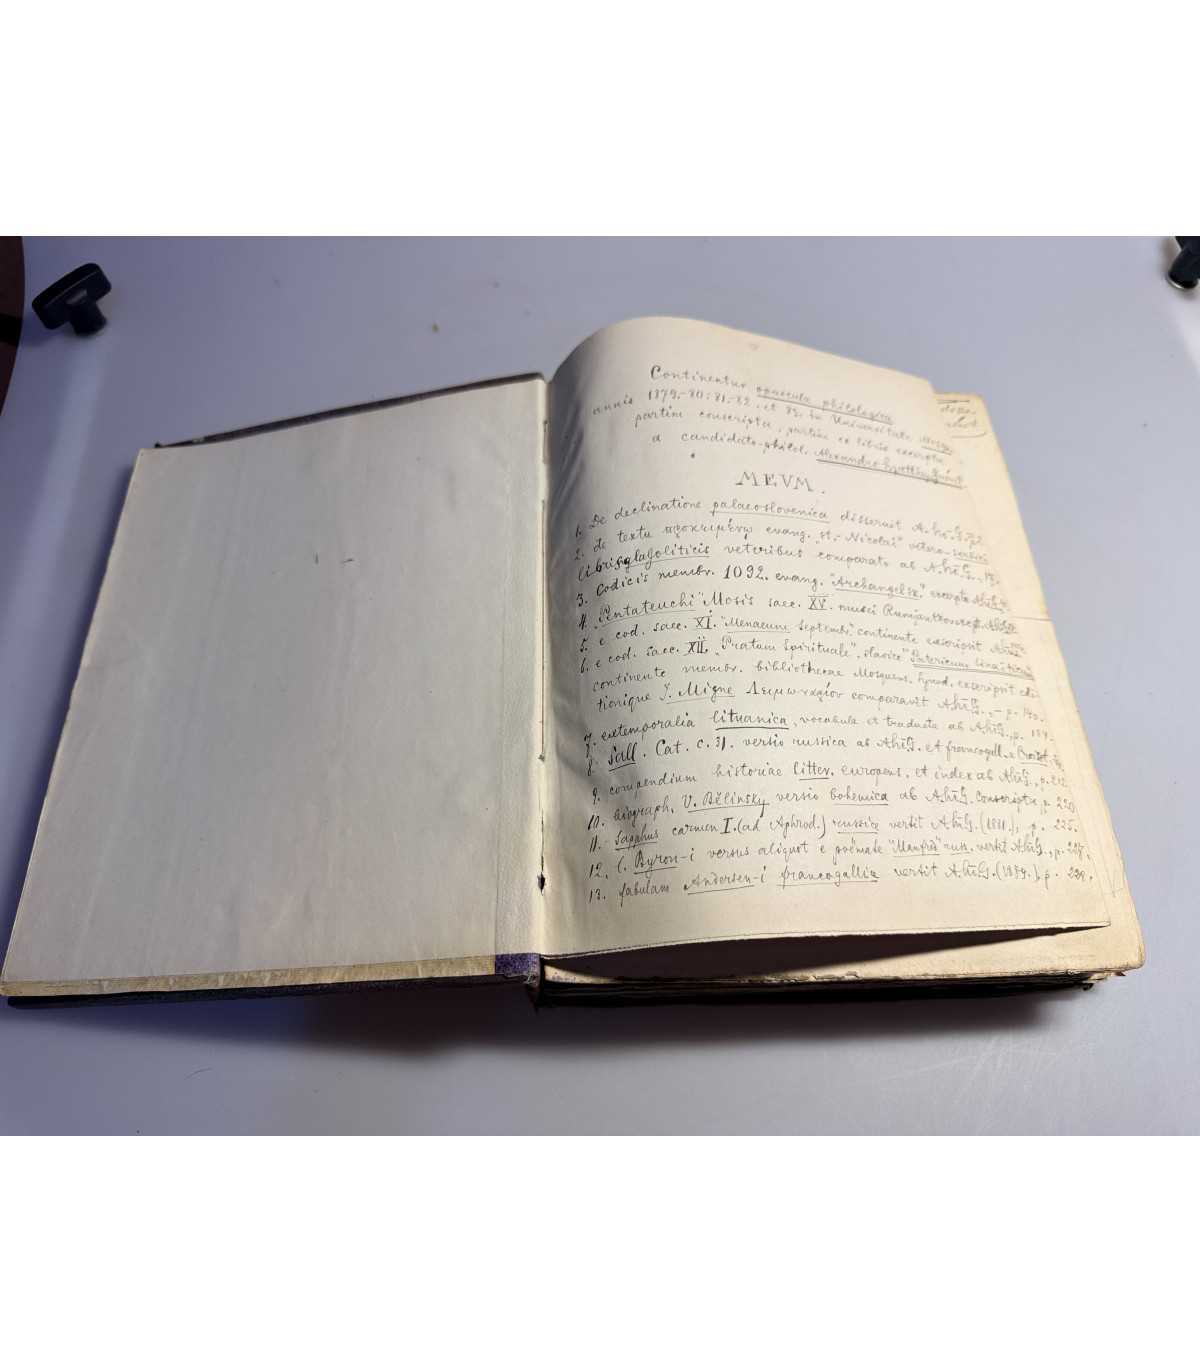 Continentur opuscula philologica
annis 1879-80: 81-82. et 83. in Universitate Mosqu.
partim conscripta, partim ex libris excerpta
a candidato-philol. Alexandro
MEVM.
1. De declinatione palaeoslovenica disseruit A.
2. de textu evang. "st.-Nicolai" vetero-serbici
libris glagoliticis veteribus comparato ab
3. Codicis membr. 1092. evang. "Archangelsk." excerpta
4. "Pentateuchi" Mosis saec. XV. musei Rumjantzow
5. e cod. saec. XI. "Menaeum septembr." continente exscripsit
6. e cod. saec. XII. "Pratum spirituale", slavice "Patericum Sinaiticum"
continente membr. bibliothecae Mosquens. Synod. exscripsit edi-
tionique J. Migne comparavit p. 140.
7. extemporalia lituanica, vocabula et traducta ab
8. Sall. Cat. c. 31. versio russica ab et francogall. e
9. compendium historiae litter. europens. et index ab
10. biograph. V. Bělinsky versio bohemica ab conscripta, p. 220.
11. Sapphus carmen I. (ad Aphrod.) russice vertit (1881.), p. 225.
12. l. Byron-i versus aliquot e poëmate "Manfred" russ. vertit p. 227.
13. fabulam Andersen-i francogallice vertit (1884.), p. 228.